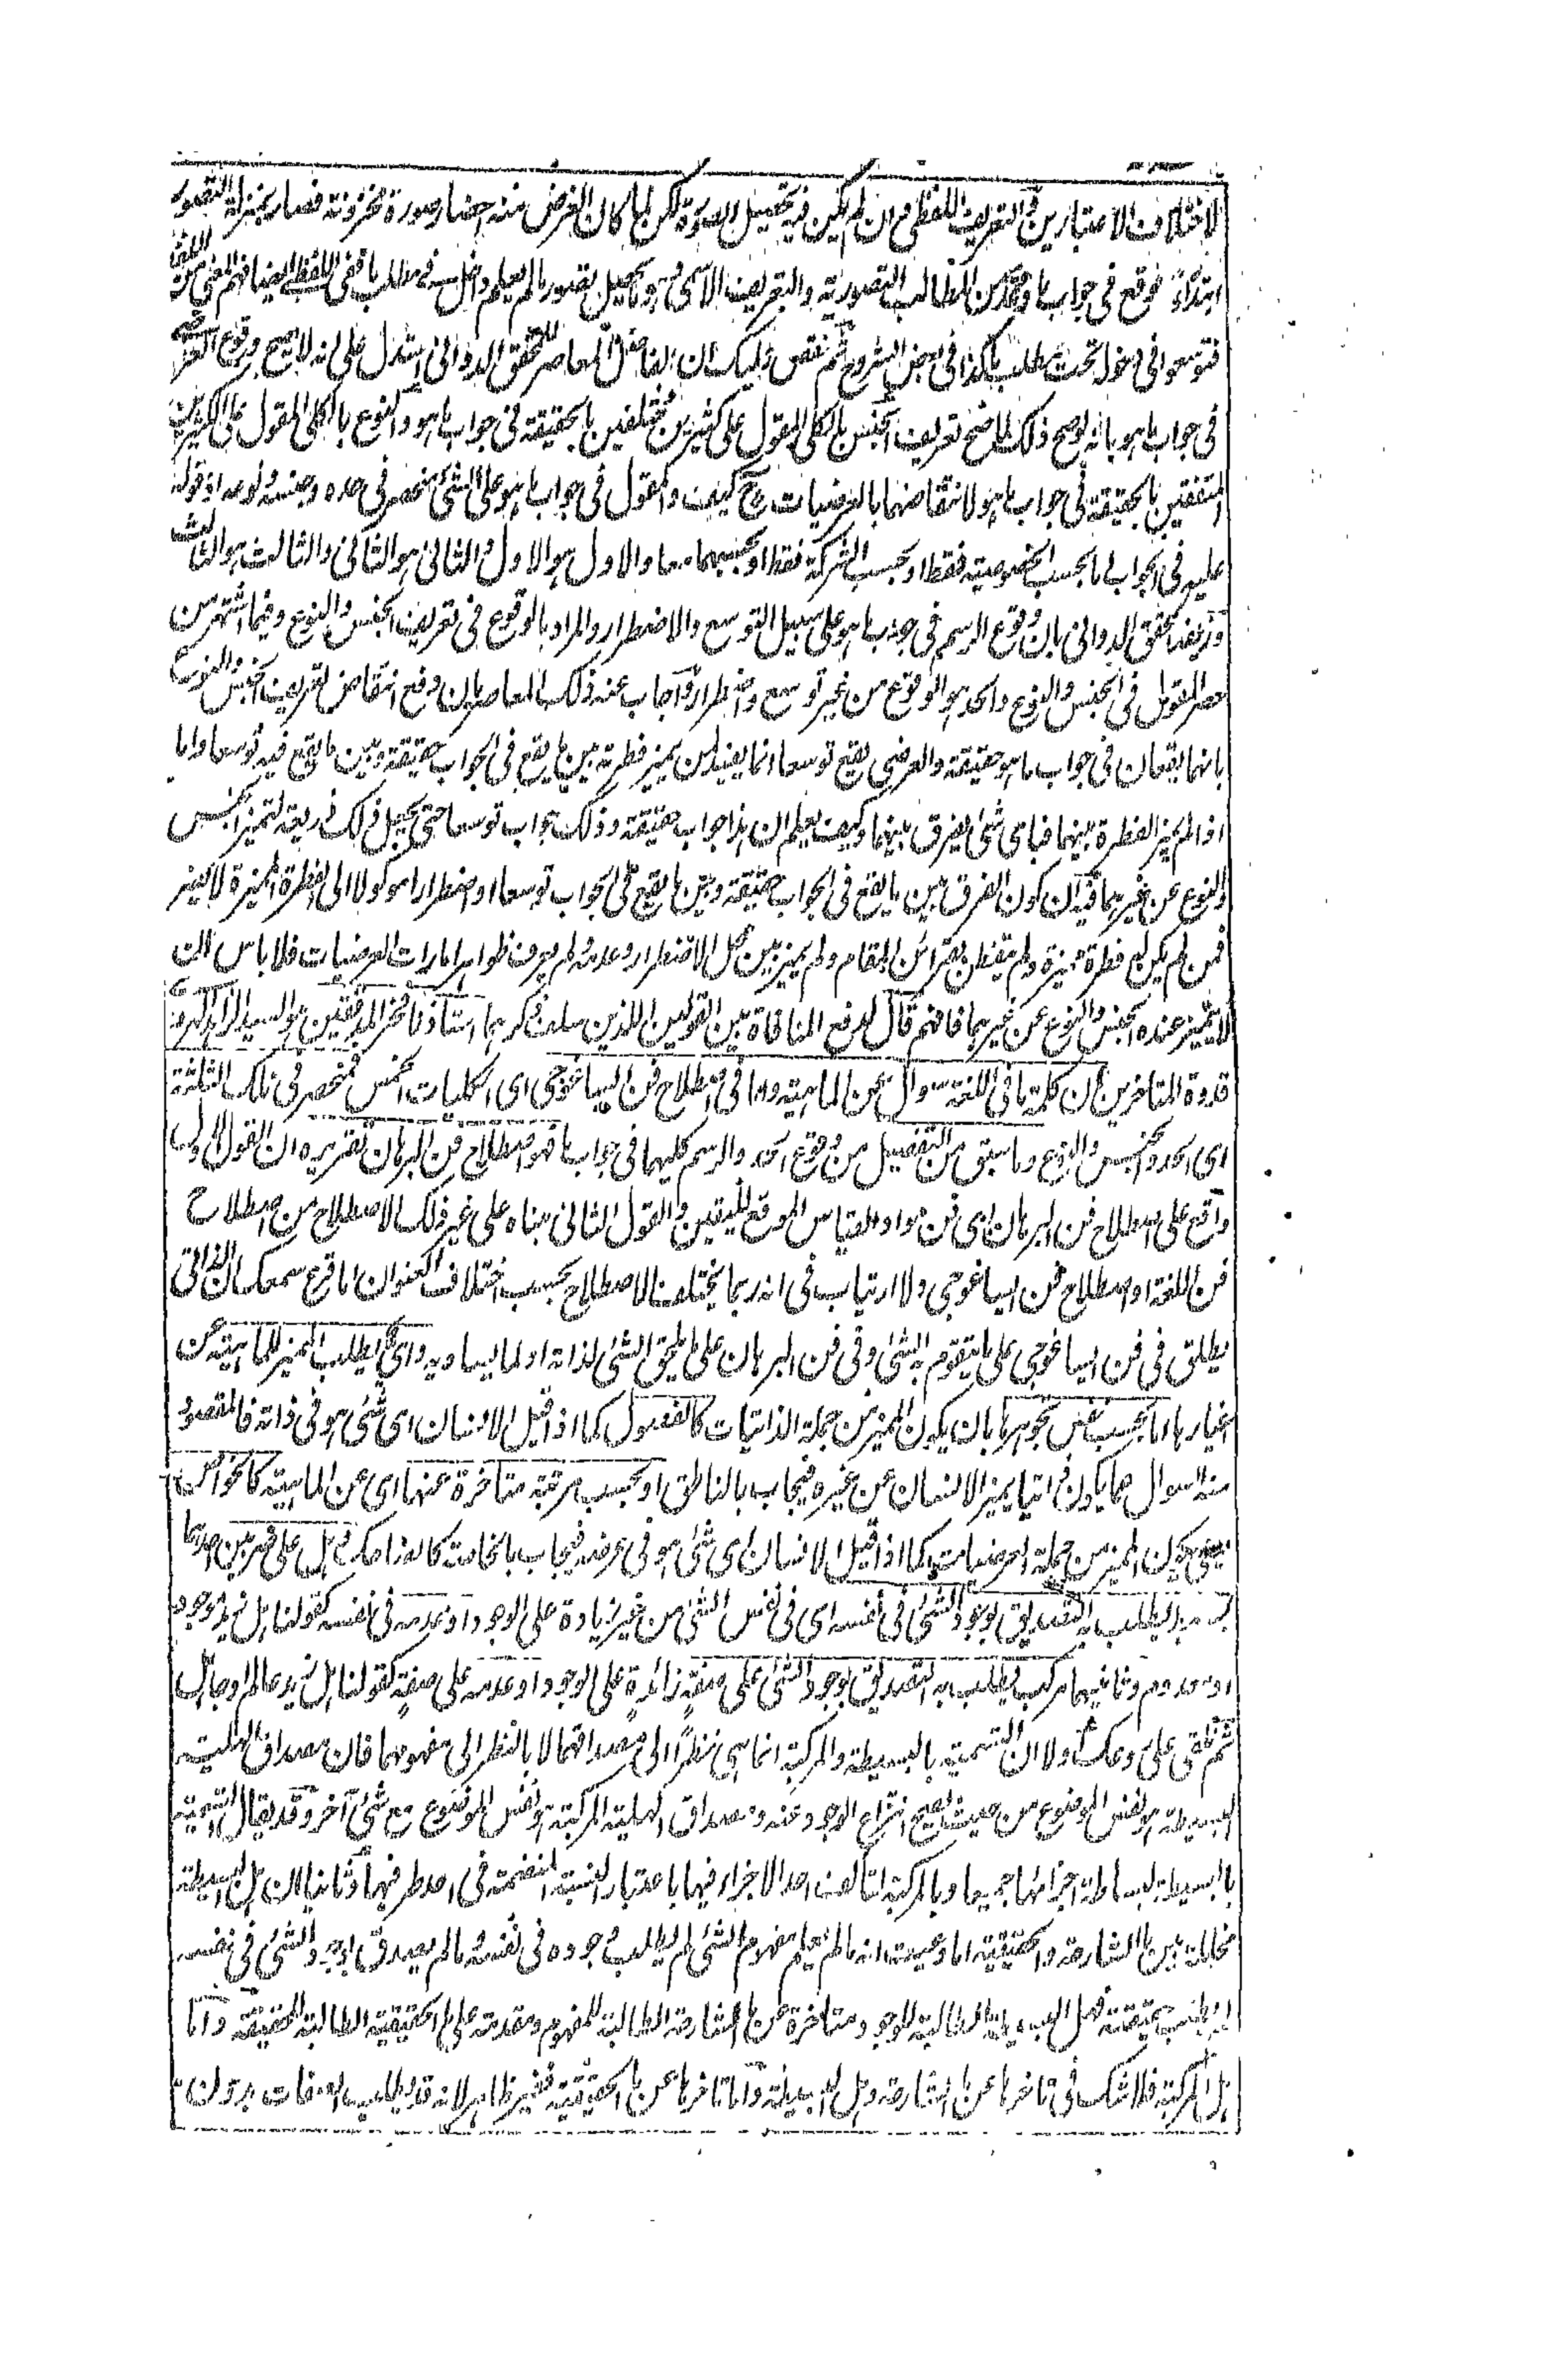 لاختلاف الاعتبارين فى التعريف اللفظى وان لم يكن فيه تحصيل الصورة لكن لما كان الغرض منه احضار صورة مخزونة فصار بمنزلة التصور
ابتداءً فوقع فى جواب ما وعد من المطالب التصورية والتعريف الاسمى هو تحصيل تصور ما لم يعلم داخل فى مطلب ما ففى اللفظى ايضا فهم المعنى من
فتوسعوا فى دخوله تحت مطلب ما كذا فى بعض الشروح ثم نقص عليك ان الفاضل المعاصر للمحقق الدوانى استدل على انه لا يصح وقوع
فى جواب ما هو بانه لو صح ذلك لما صح تعريف الجنس بالكلى المقول على كثيرين مختلفين بالحقيقة فى جواب ما هو والنوع بالكلى المقول على الكثيرين
المتفقين بالحقيقة فى جواب ما هو لانتقاضهما بالعرضيات ح كيف والمقول فى جواب ما هو على الشئ منحصر فى حده وجنسه ونوعه اذ قوله
عليه فى الجواب اما بحسب الخصوصية فقط او بحسب الشركة فقط او بحسبهما معا والاول هو الاول والثانى هو الثانى والثالث هو الثالث
وزيفه المحقق الدوانى بان وقوع الرسم فى جواب ما هو على سبيل التوسع والاضطرار والمراد بالوقوع فى تعريف الجنس والنوع وفيما اشتهر من
حصر المقول فى الجنس والنوع والحد هو الوقوع من غير توسع واضطرار وآجاب عنه ذلك المعاصر بان دفع انتقاض تعريف الجنس والنوع
بانهما يقعان فى جواب ما هو حقيقة والعرضى يقع توسعا انما يفيد لمن يميز فطرته بين ما يقع فى الجواب حقيقة وبين ما يقع فيه توسعا واما
اذا لم يميز الفطرة بينهما فباى شئ يفرق بينهما وكيف يعلم ان هذا جواب حقيقة وذلك جواب توسعا حتى يجعل ذلك ذريعة لتميز الجنس
والنوع عن غيرهما وفيه ان كون الفرق بين ما يقع فى الجواب حقيقة وبين ما يقع فى الجواب توسعا او اضطرارا موكولا الى الفطرة المميزة لا يضر
فمن لم يكن له فطرة مميزة ولم يتفطن بقرائن المقام ولم يميز بين محل الاضطرار وعدمه ولم يعرف ظواهر امارات العرضيات فلا باس بان
لا يتميز عنده الجنس والنوع عن غيرهما فافهم قال لدفع المنافاة بين القولين اللذين سلف ذكرهما استاذنا فخر المدققين هو السيد الزاهد الهروى
قدوة المتاخرين ان كلمة ما فى اللغة سوال عن الماهية واما فى اصطلاح فن ايساغوجى اى الكليات الخمس فمنحصر فى تلك الثلاثة
اى الحد والجنس والنوع وما سبق من التفصيل من وقوع الحد والرسم كليهما فى جواب ما فهو اصطلاح فن البرهان تقريره ان القول الاول
واقع على اصطلاح فن البرهان اى فن مواد القياس الموقع لليقين والقول الثانى مبناه على غير ذلك الاصطلاح من اصطلاح
فن اللغة او اصطلاح فن ايساغوجى ولا ارتياب فى انه ربما يختلف الاصطلاح بحسب اختلاف العنوان اما قرع سمعك ان الذاتى
يطلق فى فن ايساغوجى على ما يتقوم به الشئ وفى فن البرهان على ما يلحق الشئ لذاته او لما يساويه واى يطلب المميز للماهية عن
اغيارها اما بحسب نفس جوهرها بان يكون المميز من جملة الذاتيات كالفصول كما اذا قيل الانسان اى شئ هو فى ذاته فالمقصود
منه السوال عما يكون ذاتيا يميز الانسان عن غيره فيجاب بالناطق او بحسب مرتبة متاخرة عنها اى عن الماهية كالخواص
يعنى يكون المميز من جملة العرضيات كما اذا قيل الانسان اى شئ هو فى عرضه فيجاب بالخاصة كالضاحك وهل على ضربين احدهما
بسيط يطلب به التصديق بوجود الشئ فى نفسه اى فى نفس الشئ من غير زيادة على الوجود او عدمه فى نفسه كقولنا هل زيد موجود
او معدوم وثانيهما مركب يطلب به التصديق بوجود الشئ على صفةٍ زائدةٍ على الوجود او عدمه على صفةٍ كقولنا هل زيد عالم او جاهل
ثم القى على وعك اولا ان التسمية بالبسيطة والمركبة انما هى نظرًا الى مصداقهما لا بالنظر الى مفهومهما فان مصداق الهلية
البسيطة هو نفس الموضوع من حيث يصح انتزاع الوجود عنه ومصداق الهلية المركبة هو نفس الموضوع مع شئ آخر وقد يقال التسمية
بالبسيطة لبساطة اجزائها جميعا وبالمركبة لتالف احد الاجزاء فيها باعتبار النسبة المنضمة فى احد طرفيها وثانيا ان هل البسيطة
متخللة بين ما الشارحة والحقيقية اما وعيت انه ما لم يعلم مفهوم الشئ لم يطلب وجوده فى نفسه وما لم يصدق بوجود الشئ فى نفسه
لم يطلب حقيقته فهل البسيطة الطالبة للوجود متاخرة عن ما الشارحة الطالبة للمفهوم ومقدمة على ما الحقيقية الطالبة للحقيقة واما
هل المركبة فلا شك فى تاخرها عن ما الشارحة وهل البسيطة واما تاخرها عن ما الحقيقية فغير ظاهر لانه قد يطلب الصفات بدون